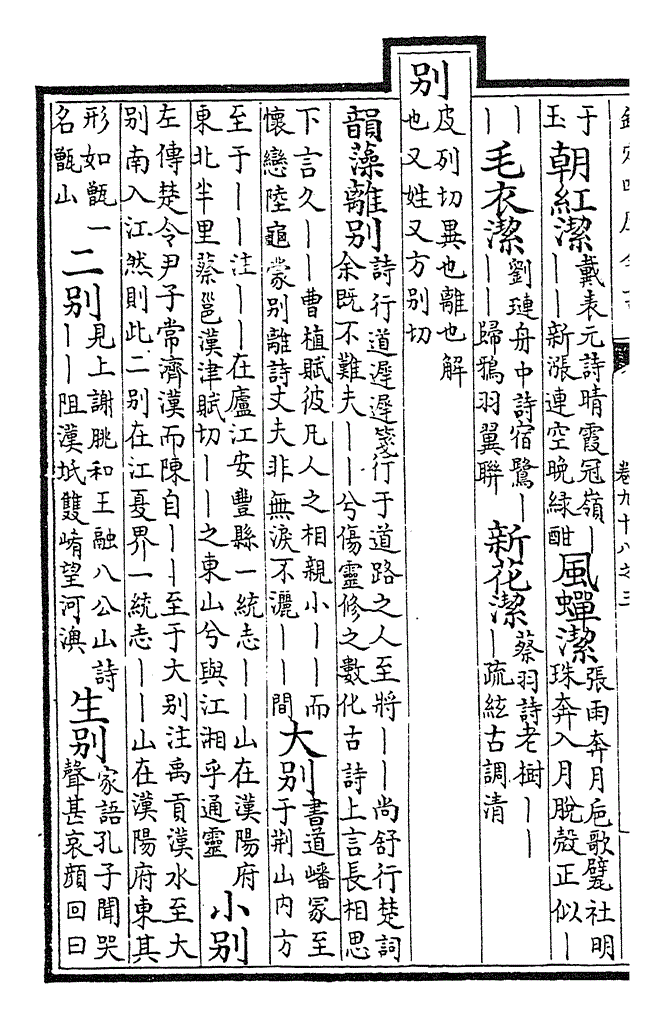 欽定四庫全書 卷九十八之三
于
玉
朝紅潔
戴表元詩晴霞冠嶺丨
丨丨新漲連空晚綠酣
風蟬潔
張雨奔月巵歌甓社明
珠奔入月脫殼正似丨
丨
丨
毛衣潔
劉璉舟中詩宿鷺丨
丨丨歸鴉羽翼聯
新花潔
蔡羽詩老樹丨丨
丨疏絃古調清
別
皮列切異也離也解
也又姓又方別切
韻藻離別
詩行道遲遲箋行于道路之人至將丨丨尚舒行楚詞
余既不難夫丨丨兮傷靈修之數化古詩上言長相思
下言久丨丨曹植賦彼凡人之相親小丨丨丨而
懷戀陸龜蒙別離詩丈夫非無淚不灑丨丨間
大別
書道嶓冢至
于荆山内方
至于丨丨注丨丨在廬江安豐縣一統志丨丨山在漢陽府
東北半里蔡邕漢津賦切丨丨之東山兮與江湘乎通靈
小別
左傳楚令尹子常濟漢而陳自丨丨至于大別注禹貢漢水至大
別南入江然則此二別在江夏界一統志丨丨山在漢陽府東其
形如甑一
名甑山
二別
見上謝朓和王融八公山詩
丨丨阻漢坻雙崤望河澳
生別
家語孔子聞哭
聲甚哀顔回曰